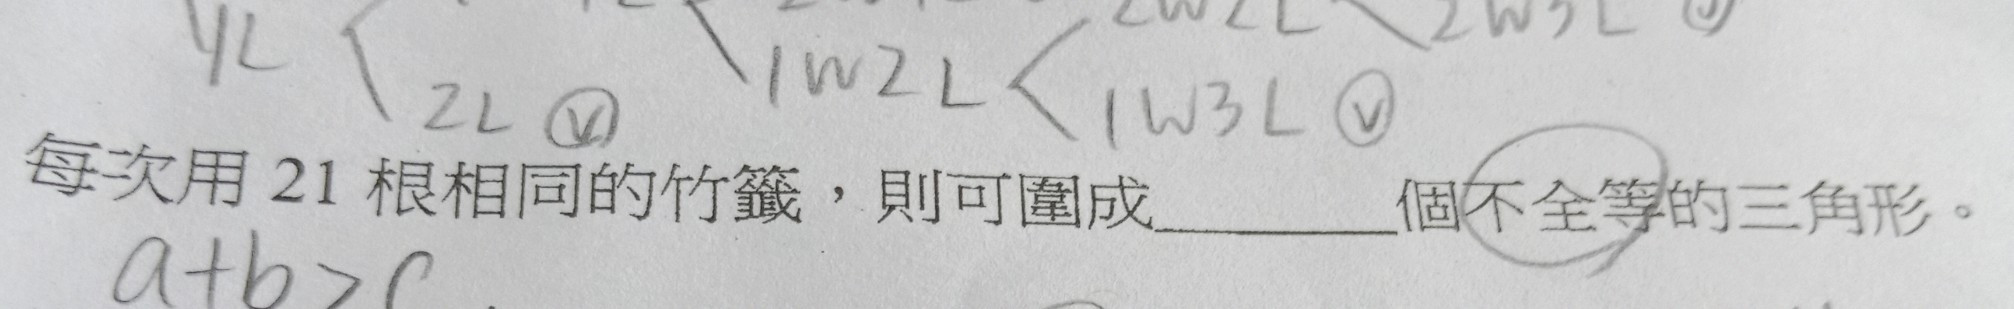 2W2L 2W3L
1L 1W2L
2L ⓥ 1W3L ⓥ
每次用 21 根相同的竹籤，則可圍成________個不全等的三角形。
a+b>c